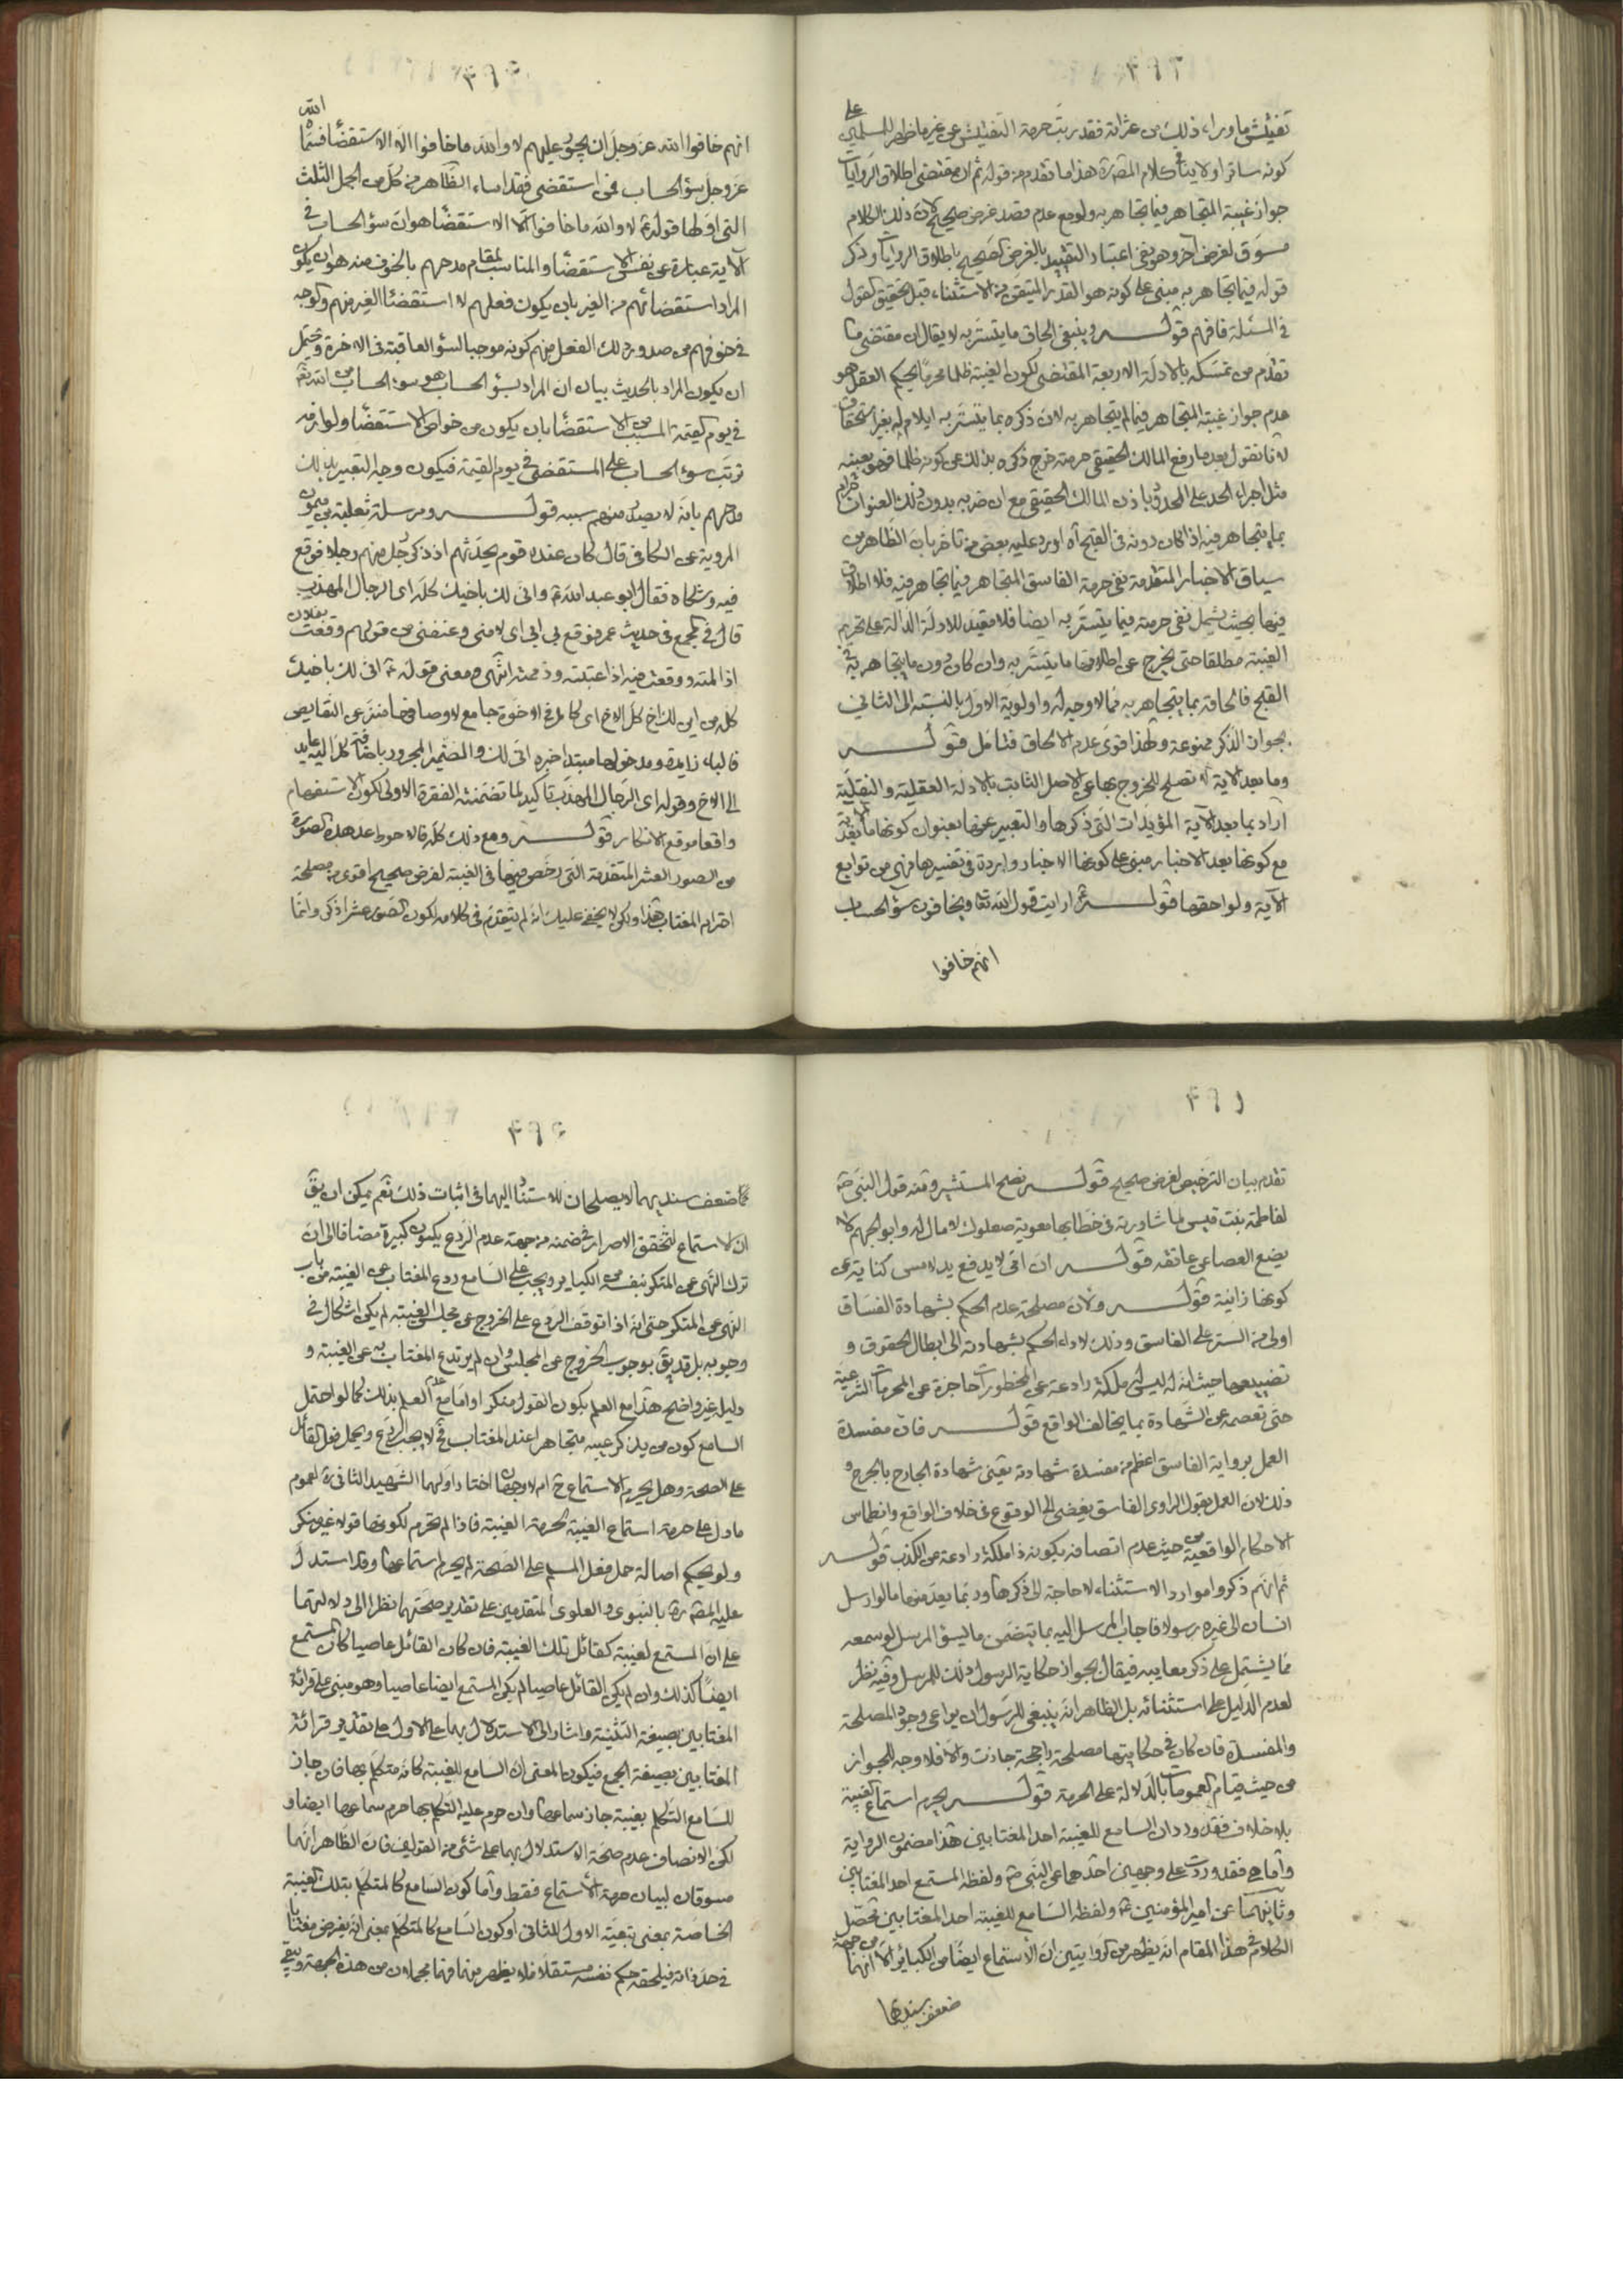 ٣٩٢
تفتيش ماوراء ذلك من عثراته فقد رتب حرمة التفتيش عن غير ما ظهر للمسلمين على
كونه ساترا ولا ينافي كلام المصره هذا ما تقدم من قوله ثم ان مقتضى اطلاق الروايات
جواز غيبة المتجاهر فيما تجاهر به ولو مع عدم قصد غرض صحيح لان ذلك الكلام
مسوق لغرض اخر وهو نفى اعتبار التقييد بالغرض الصحيح باطلاق الروايات وذكر
قوله فيما تجاهر به مبنى على كونه هو القدر المتيقن من الاستثناء قبل تحقيق القول
في المسئلة فافهم قوله وينبغى الحاق ما يتستر به لا يقال ان مقتضى ما
تقدم من تمسكه بالادلة الاربعة المقتضى لكون الغيبة ظلما محرما بحكم العقل هو
عدم جواز غيبة المتجاهر فيما لم يتجاهر به لان ذكره بما يتستر به ايلام له بغير استحقاق
لانا نقول بعد ما رفع المالك الحقيقي حرمته خرج ذكره بذلك عن كونه ظلما فهو بعينه
مثل اجراء الحد على المحدود باذن المالك الحقيقي مع ان ضربه بدون ذلك العنوان حرام
بما يتجاهر فيه اذا كان دونه في القبح آه اورد عليه بعض من تاخر بان الظاهر من
سياق الاخبار المتقدمة نفى حرمة الفاسق المتجاهر فيما تجاهر فيه فلا اطلاق
فيها بحيث يشمل نفى حرمته فيما يتستر به ايضا فلا مقيد للادلة الدالة على تحريم
الغيبة مطلقا حتى يخرج عن اطلاقها ما يتستر به وان كان دون ما يتجاهر به في
القبح فالحاقه بما يتجاهر به مما لا وجه له واولوية الاول بالنسبة الى الثانى
بجواز الذكر ممنوعة ولهذا قوى عدم الالحاق فتامل قوله
وما بعد الآية لا تصلح للخروج بها عن الاصل الثابت بالادلة العقلية والنقلية
اراد بما بعد الآية المؤيدات التى ذكرها والتعبير عنها بعنوان كونها ما بعد الآية
مع كونها بعد الاخبار مبنى على كونها الاخبار واردة في تفسيرها فهي من توابع
الآية ولواحقها قوله ارايت قول الله تعا ويخافون سؤ الحساب
انهم خافوا
٣٩٣
انهم خافوا الله عز وجل ان يجور عليهم لا والله ما خافوا الا الاستقضا فسماه الله
عز وجل سؤ الحساب فمن استقضى فقد اساء الظاهر من كل من الجمل الثلث
التى اولها قوله لا والله ما خافوا الا الاستقضا هو ان سؤ الحساب في
الآية عبارة عن نفس الاستقضا والمناسب لمقام مدحهم بالخوف منه هو ان يكون
المراد استقضائهم من الغير بان يكون فعلهم لا استقضا الغير منهم والوجه
في خوفهم من صدور ذلك الفعل منهم كونه موجبا لسؤ العاقبة في الاخرة ويحتمل
ان يكون المراد بالحديث بيان ان المراد بسؤ الحساب هو سوء الحساب من الله تعا
في يوم القيمة المسبب من الاستقضا بان يكون من خواص الاستقضا ولوازمه
ترتب سوء الحساب على المستقضى في يوم القيمة فيكون وجه التعبير بذلك
مدحهم بانه لا يصدر منهم سببه قوله ومرسلة ثعلبة بن ميمون
المروية عن الكافي قال كان عنده قوم يحدثهم اذ ذكر رجل منهم رجلا فوقع
فيه وشكاه فقال ابو عبد الله ع وانى لك باخيك كله اى الرجال المهذب
قال في المجمع في حديث عمر فوقع بي ابي اى لامنى وعنفنى من قولهم وقعت بفلان
اذا لمته ووقعت فيه اذا عتبته وذممته انتهى ومعنى قوله ع انى لك باخيك
كله من اين لك اخ كل الاخ اى كامل في الاخوة جامع لاوصافها منزه عن النقايص
فالباء زايدة ومدخولها مبتدا خبره انى لك والضمير المجرور باضافة كل اليه عايد
الى الاخ وقوله اى الرجال المهذب تاكيد لما تضمنته الفقرة الاولى لكون الاستفهام
واقعا موقع الانكار قوله ومع ذلك كله فالاحوط عد هذه الصورة
من الصور العشر المتقدمة التى رخص فيها في الغيبة لغرض صحيح اقوى من مصلحة
احترام المغتاب هذا ولكن لا يخفى عليك انه لم يتقدم في كلامه لكون الصور عشرا ذكر وانما
٣٩٤
تقدم بيان الترخيص لغرض صحيح قوله نصح المستشير ومنه قول النبى ص
لفاطمة بنت قيس لما شاورته في خطابها معوية صعلوك لا مال له وابو الجهم لا
يضع العصا عن عاتقه قوله ان امى لا يدفع يد لامس كناية عن
كونها زانية قوله ولان مصلحة عدم الحكم بشهادة الفساق
اولى من الستر على الفاسق وذلك لاداء الحكم بشهادته الى ابطال الحقوق و
تضييعها حيث انه له ليس له ملكة رادعة عن المحظورات حاجزة عن المحرمات الشرعية
حتى تعصمه عن الشهادة بما يخالف الواقع قوله فان مفسدة
العمل برواية الفاسق اعظم من مفسدة شهادته يعنى شهادة الجارح بالجرح و
ذلك لان العمل بقول الراوى الفاسق يفضى الى الوقوع في خلاف الواقع وانطماس
الاحكام الواقعية من حيث عدم اتصافه بكونه ذا ملكة رادعة عن الكذب قوله
ثم انهم ذكروا موارد الاستثناء لا حاجة الى ذكرها وربما يعد منها ما لو ارسل
انسان الى غيره رسولا فاجاب المرسل اليه بما يتضمن ما ليسؤ المرسل لو سمعه
مما يشتمل على ذكر معايبه فيقال بجواز حكاية الرسول ذلك للمرسل وفيه نظر
لعدم الدليل على استثنائه بل الظاهر انه ينبغى للرسول ان يراعى وجود المصلحة
والمفسدة فان كان في حكايتها مصلحة راجحة جازت والا فلا وجه للجواز
من حيث قيام العمومات بالدلالة على الحرمة قوله يحرم استماع الغيبة
بلا خلاف فقد ورد ان السامع للغيبة احد المغتابين هذا مضمون الرواية
واما هي فقد وردت على وجهين احدهما عن النبى ص ولفظه المستمع احد المغتابين
وثانيهما عن امير المؤمنين ع ولفظه السامع للغيبة احد المغتابين تحصل
الكلام في هذا المقام انه يظهر من الروايتين ان الاستماع ايضا من الكبائر الا انهما من جهة
ضعف سنديهما
٣٩٥
ضعف سنديهما لا يصلحان للاستناد اليهما في اثبات ذلك نعم يمكن ان يق
ان الاستماع لتحقق الاصرار في ضمنه من جهة عدم الردع يكون كبيرة مضافا الى ان
ترك النهى عن المنكر بنفسه من الكباير ويجب على السامع ردع المغتاب عن الغيبة من باب
النهى عن المنكر حتى انه اذا توقف الردع على الخروج عن مجلس الغيبة لم يكن اشكال في
وجوبه بل قد يق بوجوب الخروج عن المجلس وان لم يرتدع المغتاب به عن الغيبة و
دليله غير واضح هذا مع العلم بكون القول منكرا واما مع عدم العلم بذلك كما لو احتمل
السامع كون من يذكر عيبه متجاهرا عند المغتاب فح لا يجب الردع ويحمل فعل القائل
على الصحة وهل يحرم الاستماع ح ام لا وجهان اختار اولهما الشهيد الثانى ره لعموم
ما دل على حرمة استماع الغيبة لحرمة الغيبة فاذا لم تحرم لكونها قولا غير منكر
ولو بحكم اصالة حمل فعل المسلم على الصحة لم يحرم استماعها وقد استدل
عليه المصره بالنبوى والعلوى المتقدمين على تقدير صحتهما نظرا الى دلالتهما
على ان المستمع لغيبة كقائل تلك الغيبة فان كان القائل عاصيا كان المستمع
ايضا كذلك وان لم يكن القائل عاصيا لم يكن المستمع ايضا عاصيا وهو مبنى على قرائة
المغتابين بصيغة التثنية واشار الى الاستدلال بهما على الاول على تقدير قرائة
المغتابين بصيغة الجمع فيكون المعنى ان السامع للغيبة كانه متكلم بها فان جاز
للسامع التكلم بغيبة جاز سماعها وان حرم عليه التكلم بها حرم سماعها ايضا و
لكن الانصاف عدم صحة الاستدلال بهما على شئ من القولين فان الظاهر انهما
مسوقان لبيان حرمة الاستماع فقط واما كون السامع كالمتكلم بتلك الغيبة
الخاصة بمعنى تبعية الاول للثانى او كون السامع كالمتكلم بمعنى انه يفرض مغتابا
في حد ذاته فيلحقه حكم نفسه مستقلا فلا يظهر منهما فهما مجملان من هذه الجهة ويبقى